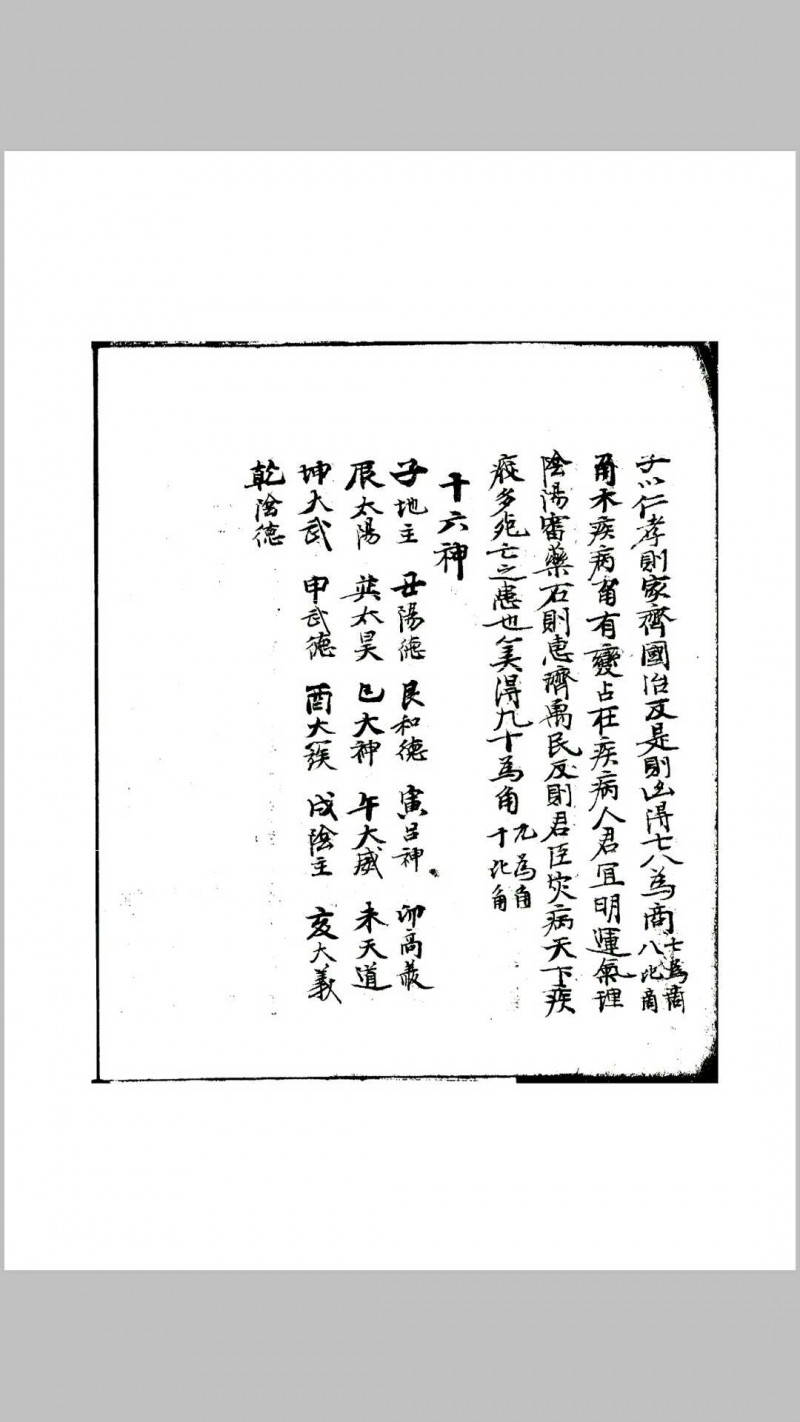 子以仁孝則家齊國治反是則凶得七八為商七為商八比商
角木疾病角有變占在疾病人君宜明運氣理
陰陽審藥石則惠濟萬民反則君臣災病天下疾
疫多死亡之患也筭得九十為角九為角十比角
十六神
子地主 丑陽德 艮和德 寅呂神 卯高叢
辰太陽 巽太昊 巳大神 午大威 未天道
坤大武 申武德 酉大簇 戌陰主 亥大義
乾陰德